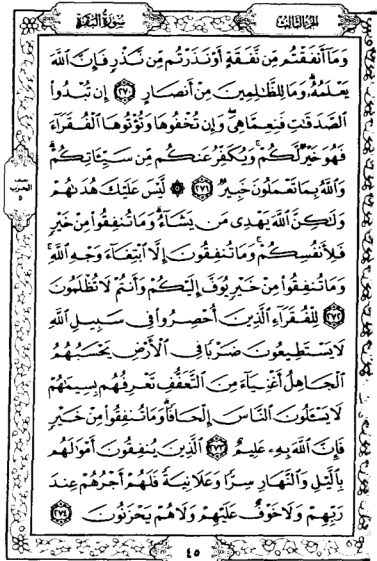 الجزء الثالث
سورة البقرة
وَمَآ أَنفَقْتُم مِّن نَّفَقَةٍ أَوْ نَذَرْتُم مِّن نَّذْرٍ فَإِنَّ ٱللَّهَ
يَعْلَمُهُۥ ۗ وَمَا لِلظَّٰلِمِينَ مِنْ أَنصَارٍ ٢٧٠ إِن تُبْدُوا۟
ٱلصَّدَقَٰتِ فَنِعِمَّا هِىَ ۖ وَإِن تُخْفُوهَا وَتُؤْتُوهَا ٱلْفُقَرَآءَ
فَهُوَ خَيْرٌ لَّكُمْ ۚ وَيُكَفِّرُ عَنكُم مِّن سَيِّـَٔاتِكُمْ ۗ
وَٱللَّهُ بِمَا تَعْمَلُونَ خَبِيرٌ ٢٧١ ۞ لَّيْسَ عَلَيْكَ هُدَىٰهُمْ
وَلَٰكِنَّ ٱللَّهَ يَهْدِى مَن يَشَآءُ ۗ وَمَا تُنفِقُوا۟ مِنْ خَيْرٍ
فَلِأَنفُسِكُمْ ۚ وَمَا تُنفِقُونَ إِلَّا ٱبْتِغَآءَ وَجْهِ ٱللَّهِ ۚ
وَمَا تُنفِقُوا۟ مِنْ خَيْرٍ يُوَفَّ إِلَيْكُمْ وَأَنتُمْ لَا تُظْلَمُونَ
٢٧٢ لِلْفُقَرَآءِ ٱلَّذِينَ أُحْصِرُوا۟ فِى سَبِيلِ ٱللَّهِ
لَا يَسْتَطِيعُونَ ضَرْبًا فِى ٱلْأَرْضِ يَحْسَبُهُمُ
ٱلْجَاهِلُ أَغْنِيَآءَ مِنَ ٱلتَّعَفُّفِ تَعْرِفُهُم بِسِيمَٰهُمْ
لَا يَسْـَٔلُونَ ٱلنَّاسَ إِلْحَافًا ۗ وَمَا تُنفِقُوا۟ مِنْ خَيْرٍ
فَإِنَّ ٱللَّهَ بِهِۦ عَلِيمٌ ٢٧٣ ٱلَّذِينَ يُنفِقُونَ أَمْوَٰلَهُم
بِٱلَّيْلِ وَٱلنَّهَارِ سِرًّا وَعَلَانِيَةً فَلَهُمْ أَجْرُهُمْ عِندَ
رَبِّهِمْ وَلَا خَوْفٌ عَلَيْهِمْ وَلَا هُمْ يَحْزَنُونَ ٢٧٤
نصف
الحزب
٥
٤٥